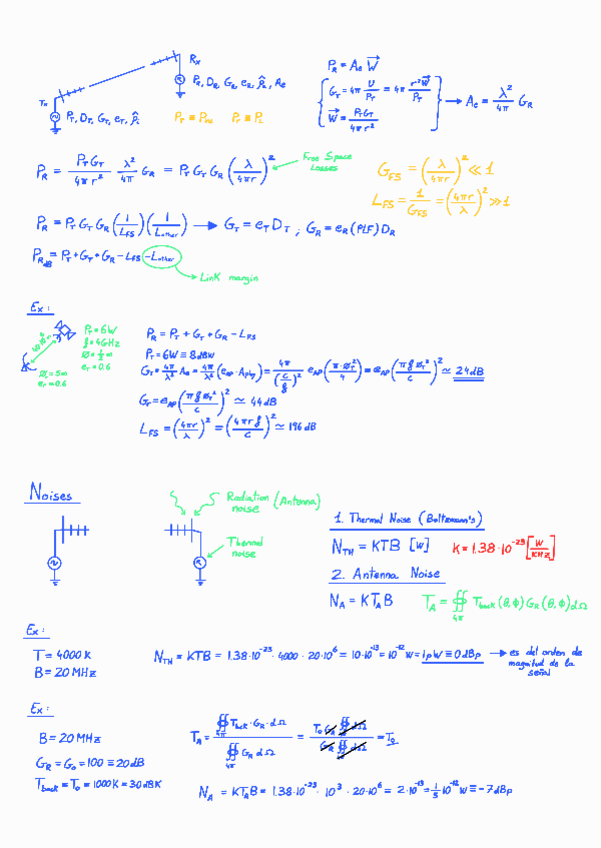 Rx
P_R, D_R, G_R, e_R, p̂_R, A_e
Tx
P_T, D_T, G_T, e_T, p̂_T
P_R = A_e W⃗
G_T = 4π U/P_T = 4π r²W⃗/P_T
W⃗ = P_T G_T/4πr²
→ A_e = λ²/4π G_R
P_R = P_T G_T/4πr² λ²/4π G_R = P_T G_T G_R (λ/4πr)²
Free Space Losses
G_FS = (λ/4πr)² ≪ 1
L_FS = 1/G_FS = (4πr/λ)² ≫ 1
P_R = P_T G_T G_R (1/L_FS)(1/L_other) → G_T = e_T D_T ; G_R = e_R (PLF) D_R
P_R dB = P_T + G_T + G_R - L_FS - L_other
Link margin
Ex:
P_T = 6W
f = 4GHz
Ø = 1/2 m
e_T = 0.6
Ø_T = 5m
e_T = 0.6
P_R = P_T + G_T + G_R - L_FS
P_T = 6W ≡ 8dBW
G_T = 4π/λ² A_e = 4π/λ² (e_AP · A_phy) = 4π/(c/f)² e_AP (π·Ø_T²/4) = e_AP (π f Ø_T/c)² ≃ 24dB
G_r = e_AP (π f Ø_r/c)² ≃ 44dB
L_FS = (4πr/λ)² = (4πrf/c)² ≃ 196dB
Noises
Radiation (Antenna) noise
Thermal noise
1. Thermal Noise (Boltzmann's)
N_TH = KTB [W] K = 1.38·10⁻²³ [W/KHz]
2. Antenna Noise
N_A = KT_A B T_A = ∯_4π T_back(θ,ϕ) G_R(θ,ϕ) dΩ
Ex:
T = 4000K
B = 20MHz
N_TH = KTB = 1.38·10⁻²³ · 4000 · 20·10⁶ = 10·10⁻¹³ = 10⁻¹²W = 1pW ≡ 0dBp → es del orden de
magnitud de la
señal
Ex:
B = 20MHz
G_R = G_0 = 100 ≡ 20dB
T_back = T_0 = 1000K = 30dBK
T_A = ∯_4π T_back · G_R · dΩ / ∯_4π G_R dΩ = T_0 G_R ∯ dΩ / G_R ∯ dΩ = T_0
N_A = KT_A B = 1.38·10⁻²³ · 10³ · 20·10⁶ = 2·10⁻¹³ = 1/5 10⁻¹² W ≡ -7dBp